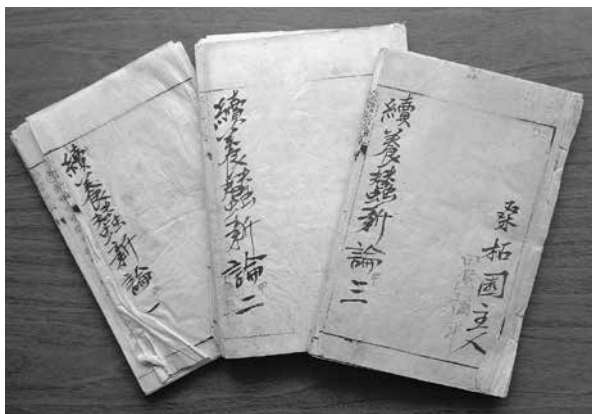 續養蠶新論 一
續養蠶新論 二
續養蠶新論 三
桑柘園主人